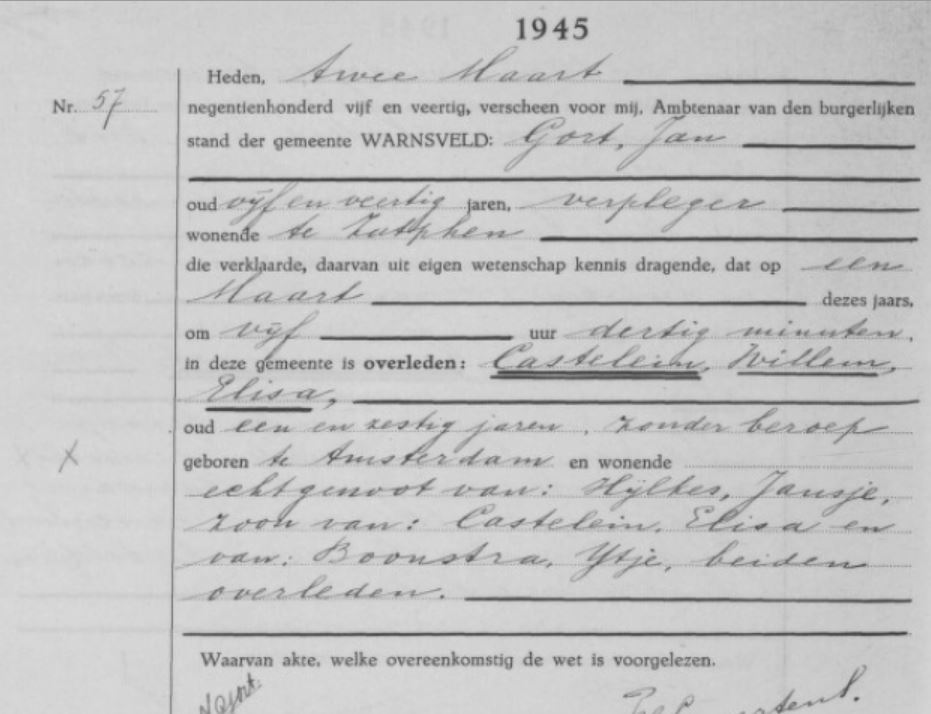 1945
Heden, twee Maart
Nr. 57
negentienhonderd vijf en veertig, verscheen voor mij, Ambtenaar van den burgerlijken
stand der gemeente WARNSVELD: Gort, Jan
oud vijf en veertig jaren, verpleger
wonende te Zutphen
die verklaarde, daarvan uit eigen wetenschap kennis dragende, dat op een
Maart dezes jaars,
om vijf uur dertig minuten,
in deze gemeente is overleden: Castelein, Willem,
Elisa,
oud een en zestig jaren, zonder beroep
X
geboren te Amsterdam en wonende
echtgenoot van: Hijlkes, Jansje,
zoon van: Castelein, Elisa en
van: Boonstra, Ytje, beiden
overleden.
Waarvan akte, welke overeenkomstig de wet is voorgelezen.
JGort.